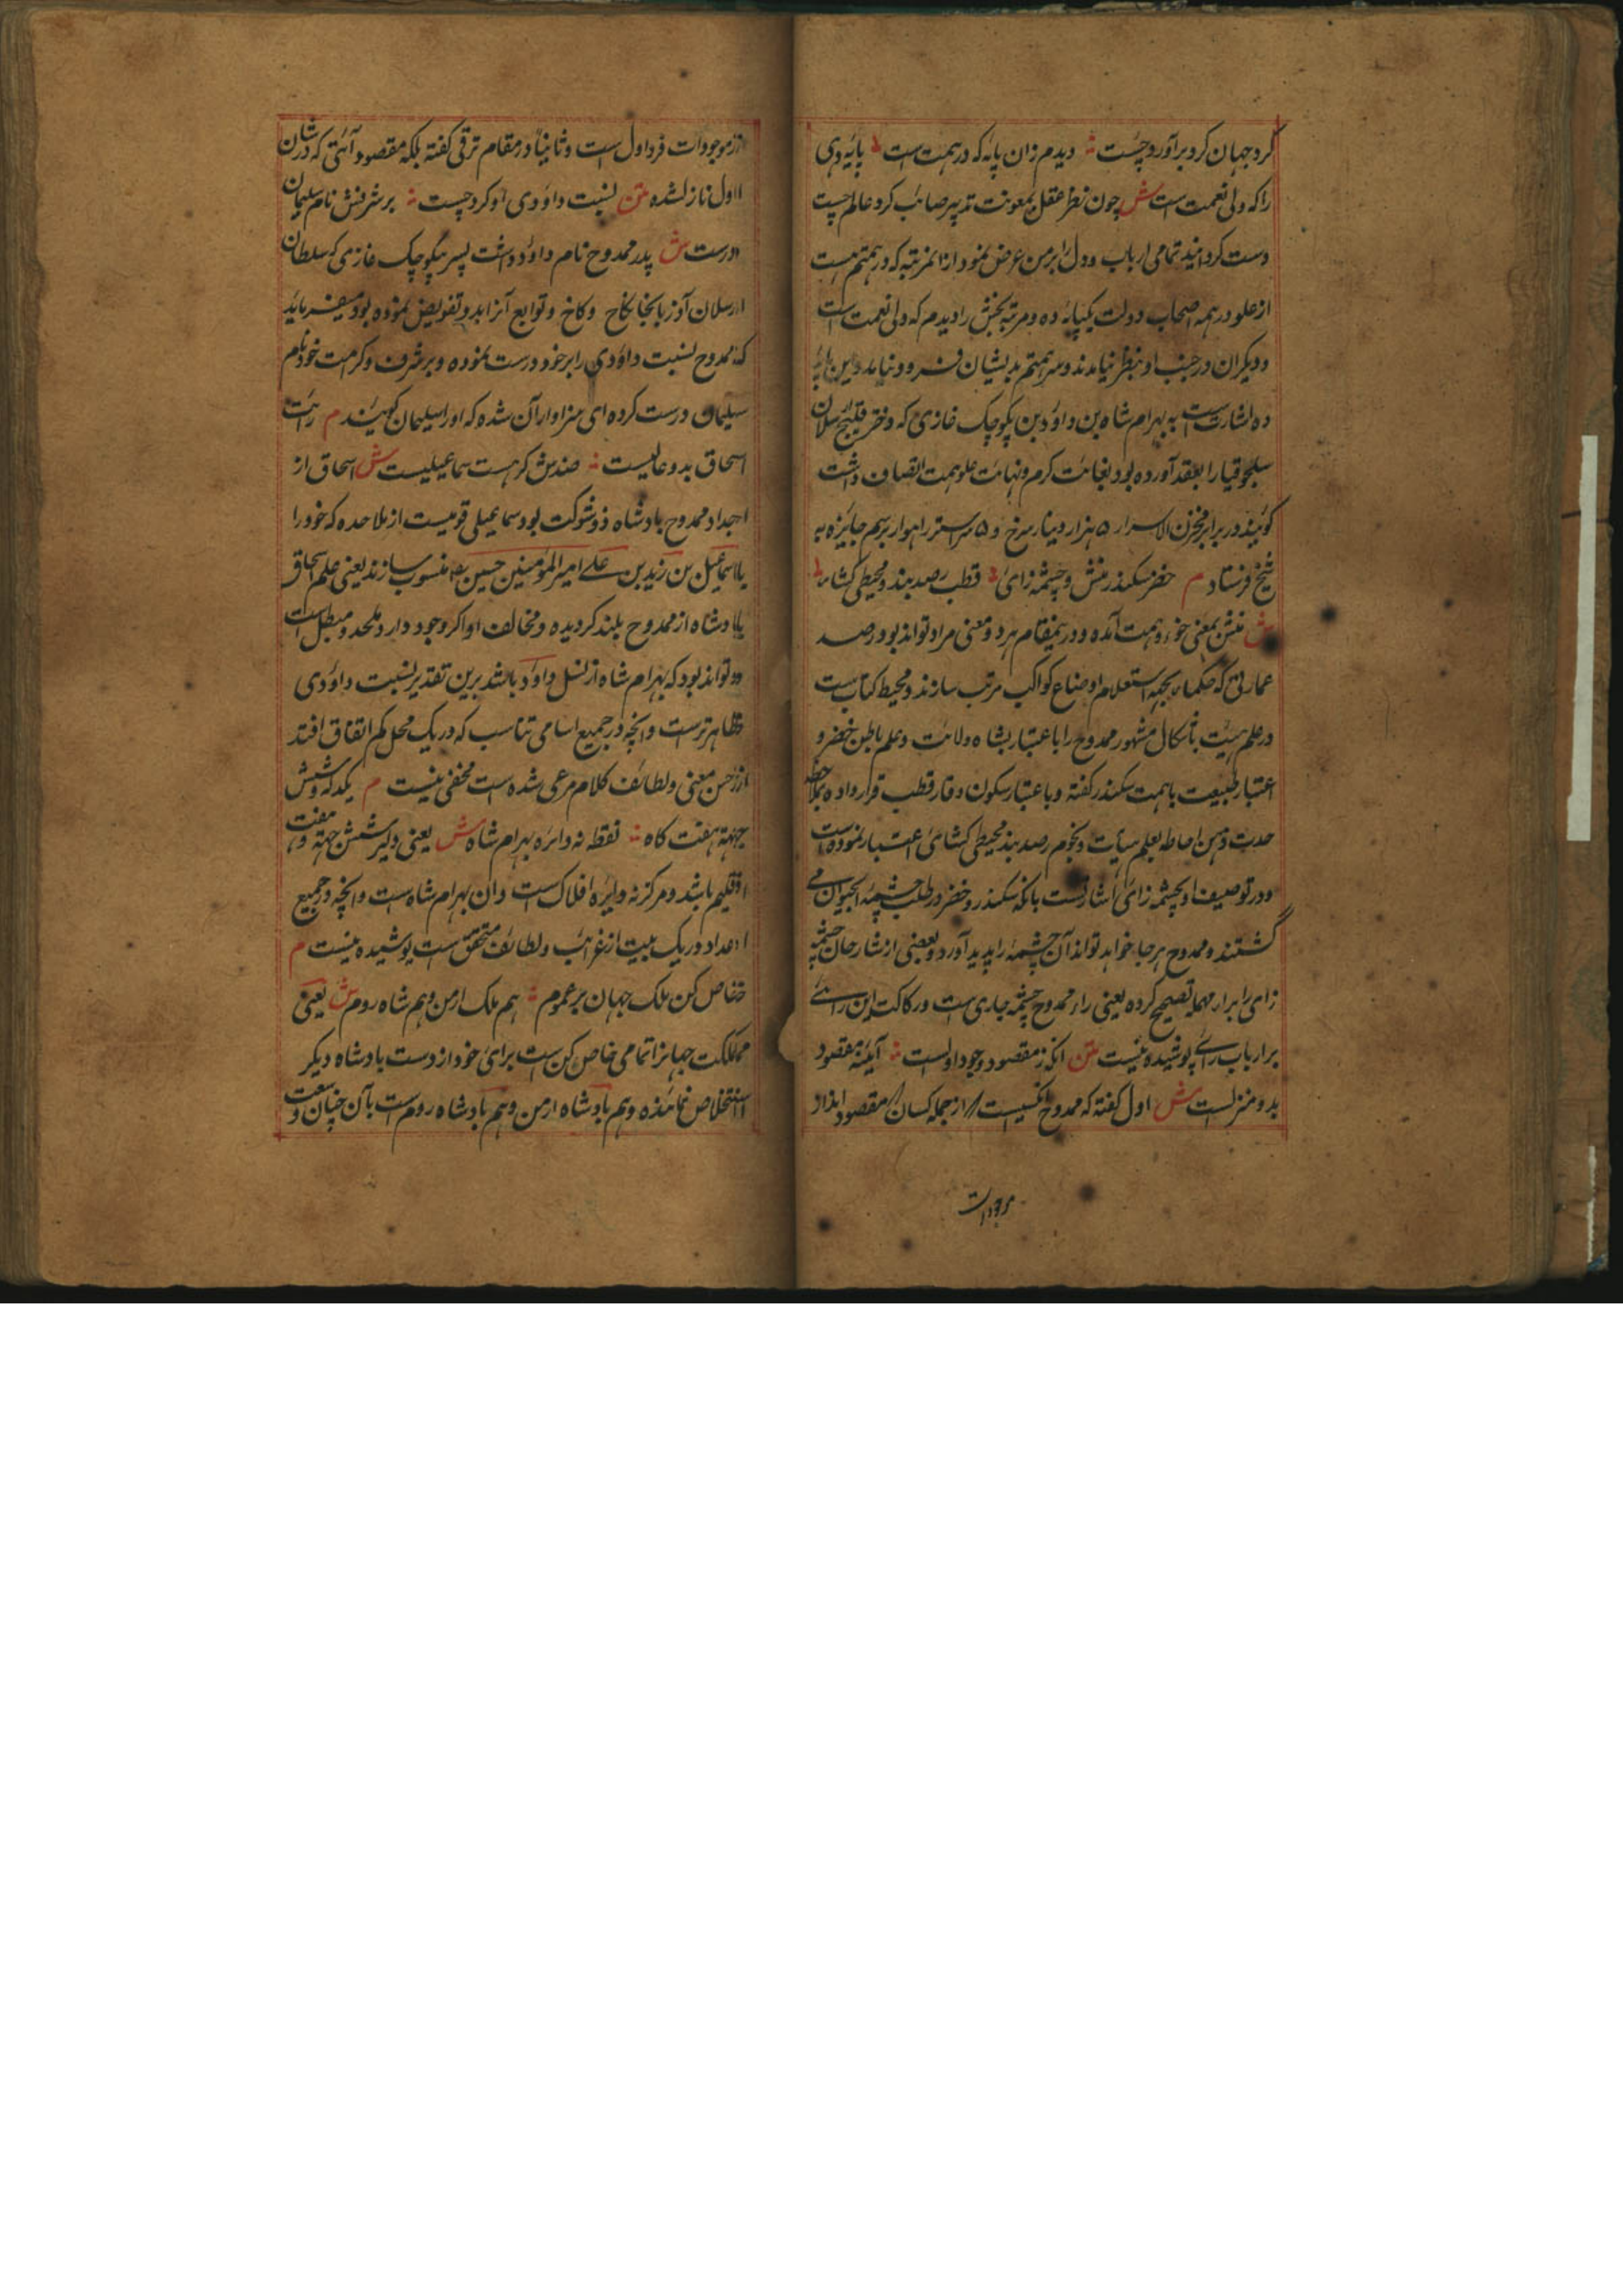 گرد جهان کرد برآورد چست ؞ دیدم زان پایه که در همت است پایه دهی
را که ولی نعمت است ش چون نظر عقل بمعونت تدبیر صائب گرد عالم چست
دست گردانید تمامی ارباب دول را بر من عرض نمود از آن مرتبه که در همتم هست
از علو در همه اصحاب دولت یک پایه ده و مرتبه بخش را دیدم که ولی نعمت است
و دیگران در جنب او بنظر نیامدند و سر همتم بدیشان فرود نیامد و این پایه
ده اشارت است به بهرام شاه بن داؤد بن کوچک غازی که دختر قلیج ارسلان
سلجوقیان را بعقد آورده بود بغایت کرم و نهایت علو همت اتصاف داشت
گویند در برابر مخزن الاسرار ۵ هزار دینار سرخ و ۵ سر استر راهوار برسم جایزه به
شیخ فرستاد م خضر سکندر منش و چشمه زای ؞ قطب رصد بند و محیطی کشای
ش منش بمعنی خوء و همت آمده و درین مقام هر دو معنی مراد تواند بود رصد
عمارتی که حکماء بجهة استعلام اوضاع کواکب مرتب سازند و محیط کتاب است
در علم هیئت باشکال مشهور ممدوح را باعتبار پشاه ولایت و علم باطن خضر و
اعتبار طبیعت با همت سکندر گفته و باعتبار سکون وقار قطب قرار داده بملاحظه
حدت ذهن و احاطه بعلم هیأت و نجوم رصد بند محیطی کشای اعتبار نموده است
و در توصیف او بچشمه زای اشارتست بآنکه سکندر و خضر در طلب چشمه الحیوان می
گشتند و ممدوح هر جا خواهد تواند آن چشمه را پدید آورد و بعضی از شارحان چشمه
زای را برار مهمله تصحیح کرده یعنی راء ممدوح چشمه جاری است و رکاکت این رائے
بر ارباب رائے پوشیده نیست متن آنکه ز مقصود وجود اولست ؞ آیتِ مقصود
بدو منزلست ش اول گفته که ممدوح آنکسیست که از جمله کسان مقصود ایذاد
موجودات
از موجودات فرد اول است و ثانیا در مقام ترقی گفته بلکه مقصود آیتی که در شان
اول نازل شده متن نسبت داؤدی او کرد چست ؞ بر شرفش نام سلیمان
درست ش پدر ممدوح نام داؤد داشت پسر کوچک غازی که سلطان
ارسلان آذربایجان کاخ وکاخ و توابع آنرا بدو تفویض نموده بود میفرماید
که ممدوح نسبت داؤدی را بر خود درست نموده و بر شرف و کرمت خود نام
سلیمان درست کرده ای سزاوار آن شده که او را سلیمان گویند م رایت
اسحاق بدو عالیست ؞ ضدش گر هست سماعیلیست ش اسحاق از
اجداد ممدوح بادشاه ذو شوکت بود سماعیلی قومیست از ملاحده که خود را
باسماعیل بن زید بن علے امیر المؤمنین حسین رض منسوب سازند یعنی علم اسحاق
بادشاه از ممدوح بلند گردیده و مخالف او اگر وجود دارد ملحد و مبطل است
و تواند بود که بهرام شاه از نسل داؤد باشد برین تقدیر نسبت داؤدی
ظاهر ترست و آنچه در جمیع اسامی تناسب که در یک محل کم اتفاق افتد
از حسن معنی و لطائف کلام مرعی شده است مخفی نیست م یکدله شش
جهة هفت گاه ؞ نقطه نه دائره بهرام شاه ش یعنی دلیر شش جهة و هفت
اقلیم باشد و مرکز نه دایره افلاک است و آن بهرام شاه است و آنچه در جمیع
اعداد در یک بیت از غرائب و لطائف متحقق ست پوشیده نیست م
خاص کن ملک جهان بر عموم ؞ هم ملک ارمن و هم شاه روم ش یعنی
مملکت جهانرا تمامی خاص کن است برای خود از دست بادشاه دیگر
استخلاص نماینده و هم بادشاه ارمن و هم بادشاه روم است بآن چنان وسعت